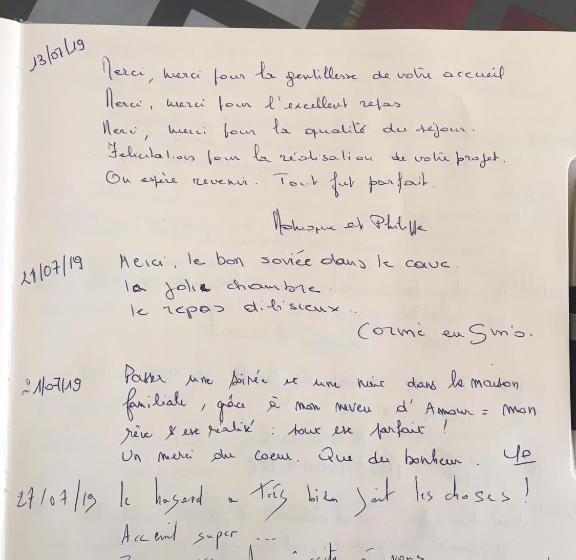 13/07/19
Merci, merci pour la gentillesse de votre accueil
Merci, merci pour l'excellent repas
Merci, merci pour la qualité du séjour.
Félicitations pour la réalisation de votre projet.
On espère revenir. Tout fut parfait.
Monique et Philippe
21/07/19
Merci, le bon soirée dans le cave.
la jolie chambre.
le repas dilisieux..
21/07/19
Passer une soirée et une nuit dans la maison
familiale, grâce à mon neveu d'Amour = mon
rêve s'est réalisé : tout est parfait !
Un merci du coeur. Que du bonheur.
27/07/19
le hasard a très bien fait les choses !
Accueil super ...